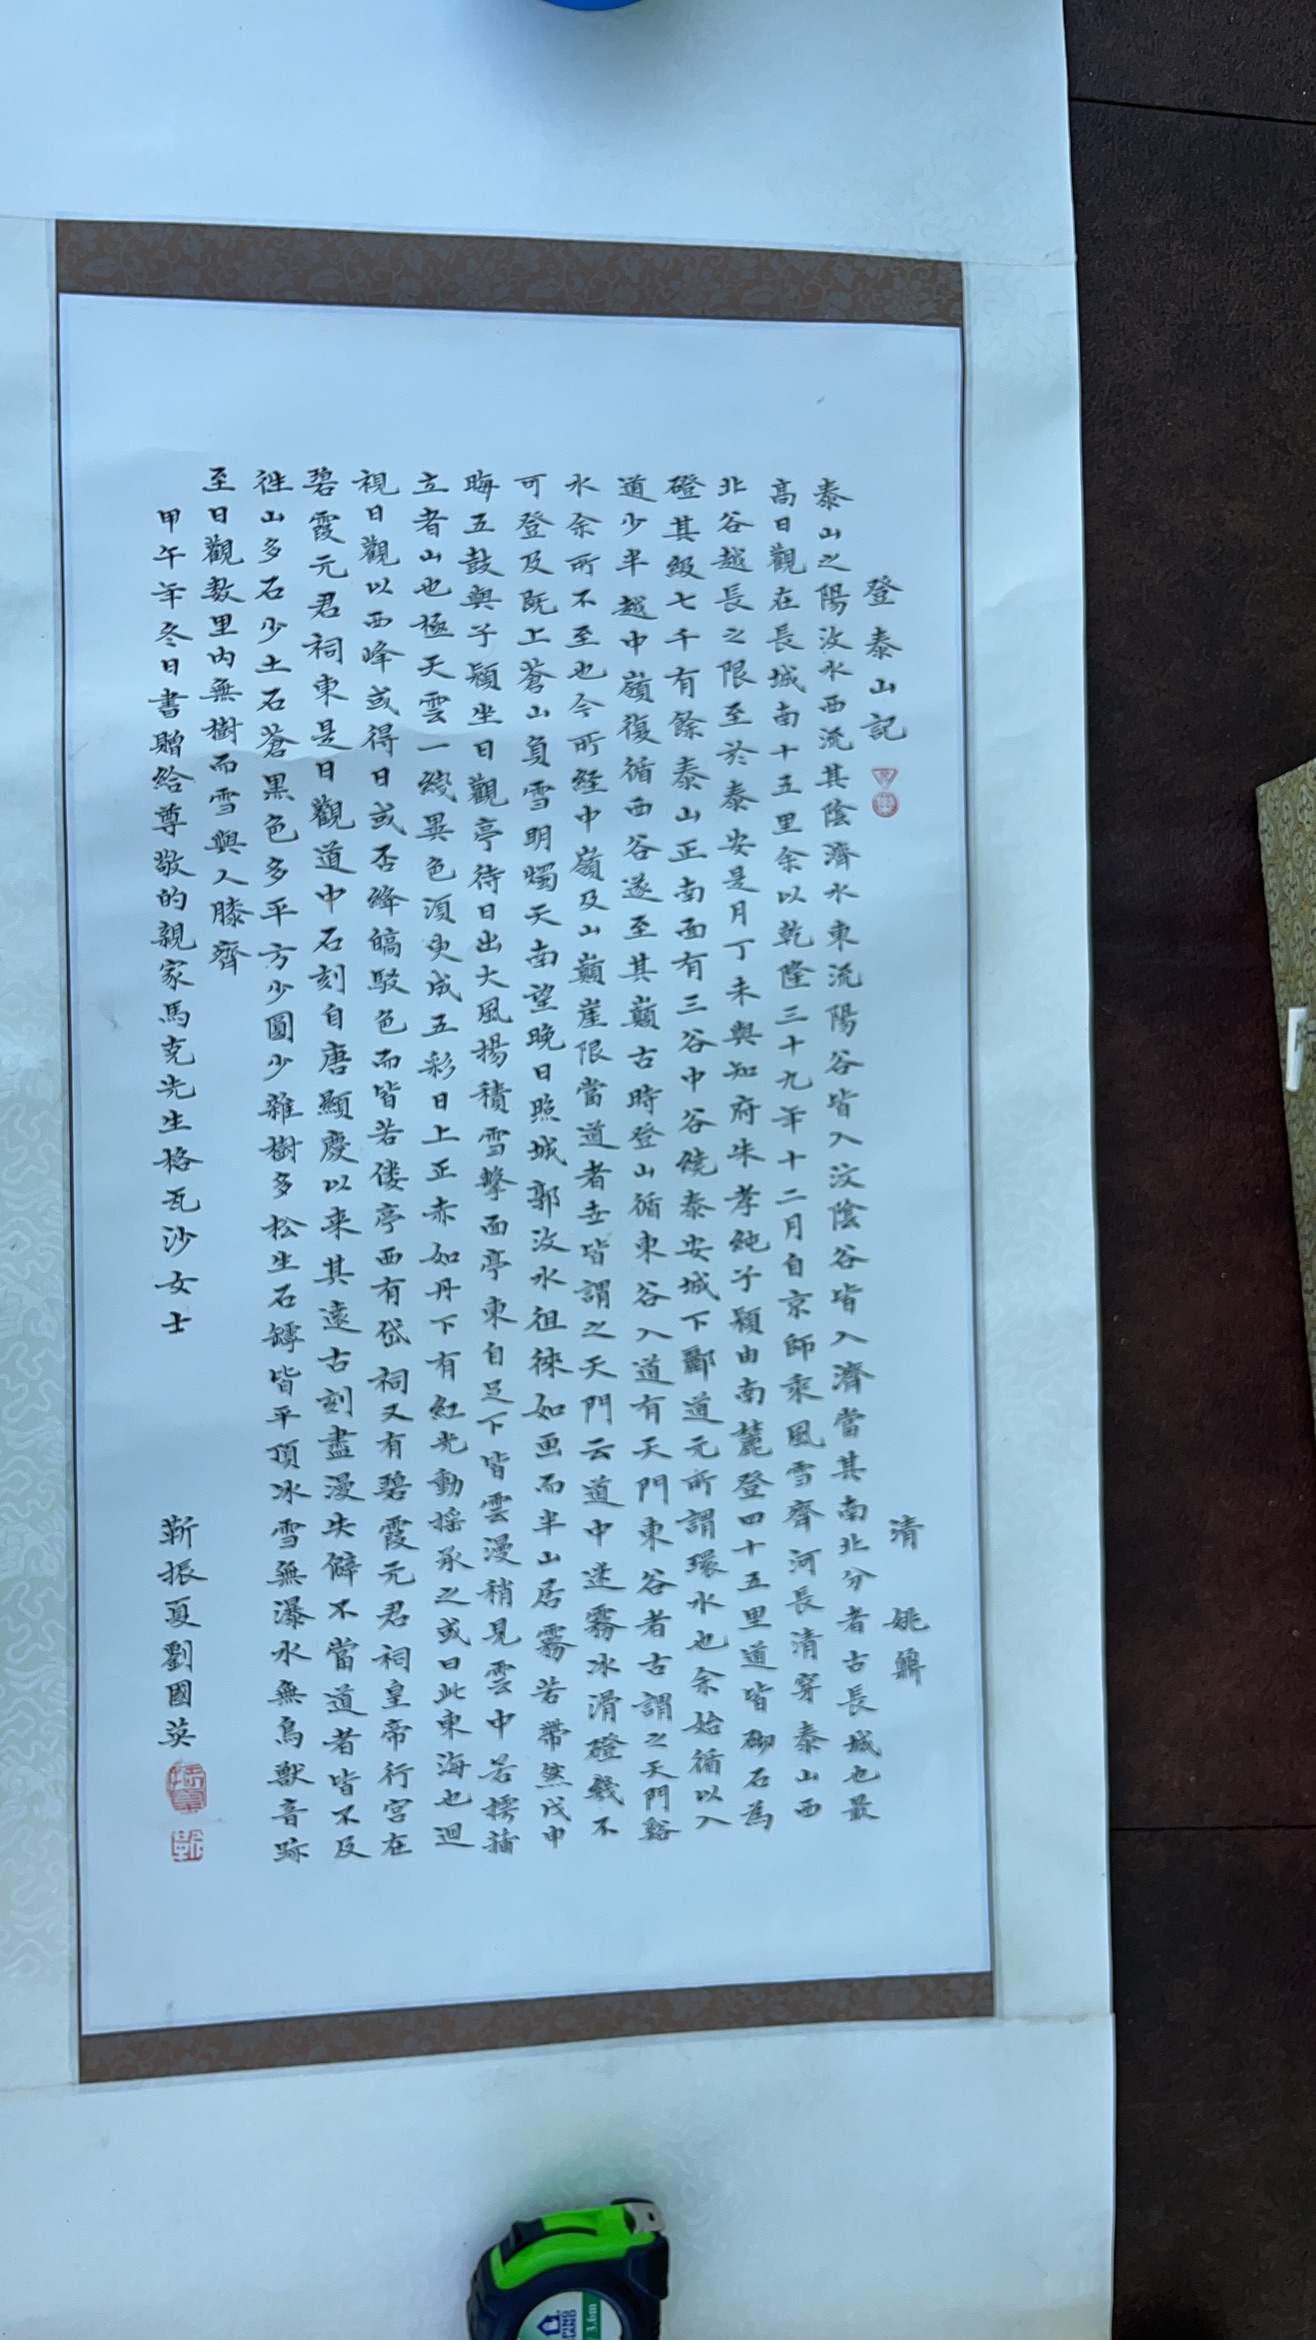 登泰山記 清 姚鼐
泰山之陽汶水西流其陰濟水東流陽谷皆入汶陰谷皆入濟當其南北分者古長城也最
高日觀在長城南十五里余以乾隆三十九年十二月自京師乘風雪齊河長清穿泰山西
北谷越長之限至於泰安是月丁未與知府朱孝純子潁由南麓登四十五里道皆砌石為
磴其級七千有餘泰山正南面有三谷中谷繞泰安城下酈道元所謂環水也余始循以入
道少半越中嶺復循西谷遂至其巔古時登山循東谷入道有天門東谷者古謂之天門谿
水余所不至也今所経中嶺及山巔崖限當道者世皆謂之天門云道中迷霧冰滑磴幾不
可登及既上蒼山負雪明燭天南望晚日照城郭汶水徂徠如画而半山居霧若帶然戊申
晦五鼓與子潁坐日觀亭待日出大風揚積雪擊面亭東自足下皆雲漫稍見雲中若摴蒱
立者山也極天雲一綫異色須臾成五彩日上正赤如丹下有紅光動搖承之或曰此東海也迴
視日觀以西峰或得日或否絳皜駁色而皆若僂亭西有岱祠又有碧霞元君祠皇帝行宮在
碧霞元君祠東是日觀道中石刻自唐顯慶以来其遠古刻盡漫失僻不當道者皆不及
往山多石少土石蒼黑色多平方少圓少雜樹多松生石罅皆平頂冰雪無瀑水無鳥獸音跡
至日觀数里內無樹而雪與人膝齊
甲午年冬日書贈給尊敬的親家馬克先生格瓦沙女士 靳振夏劉國英
3.6m